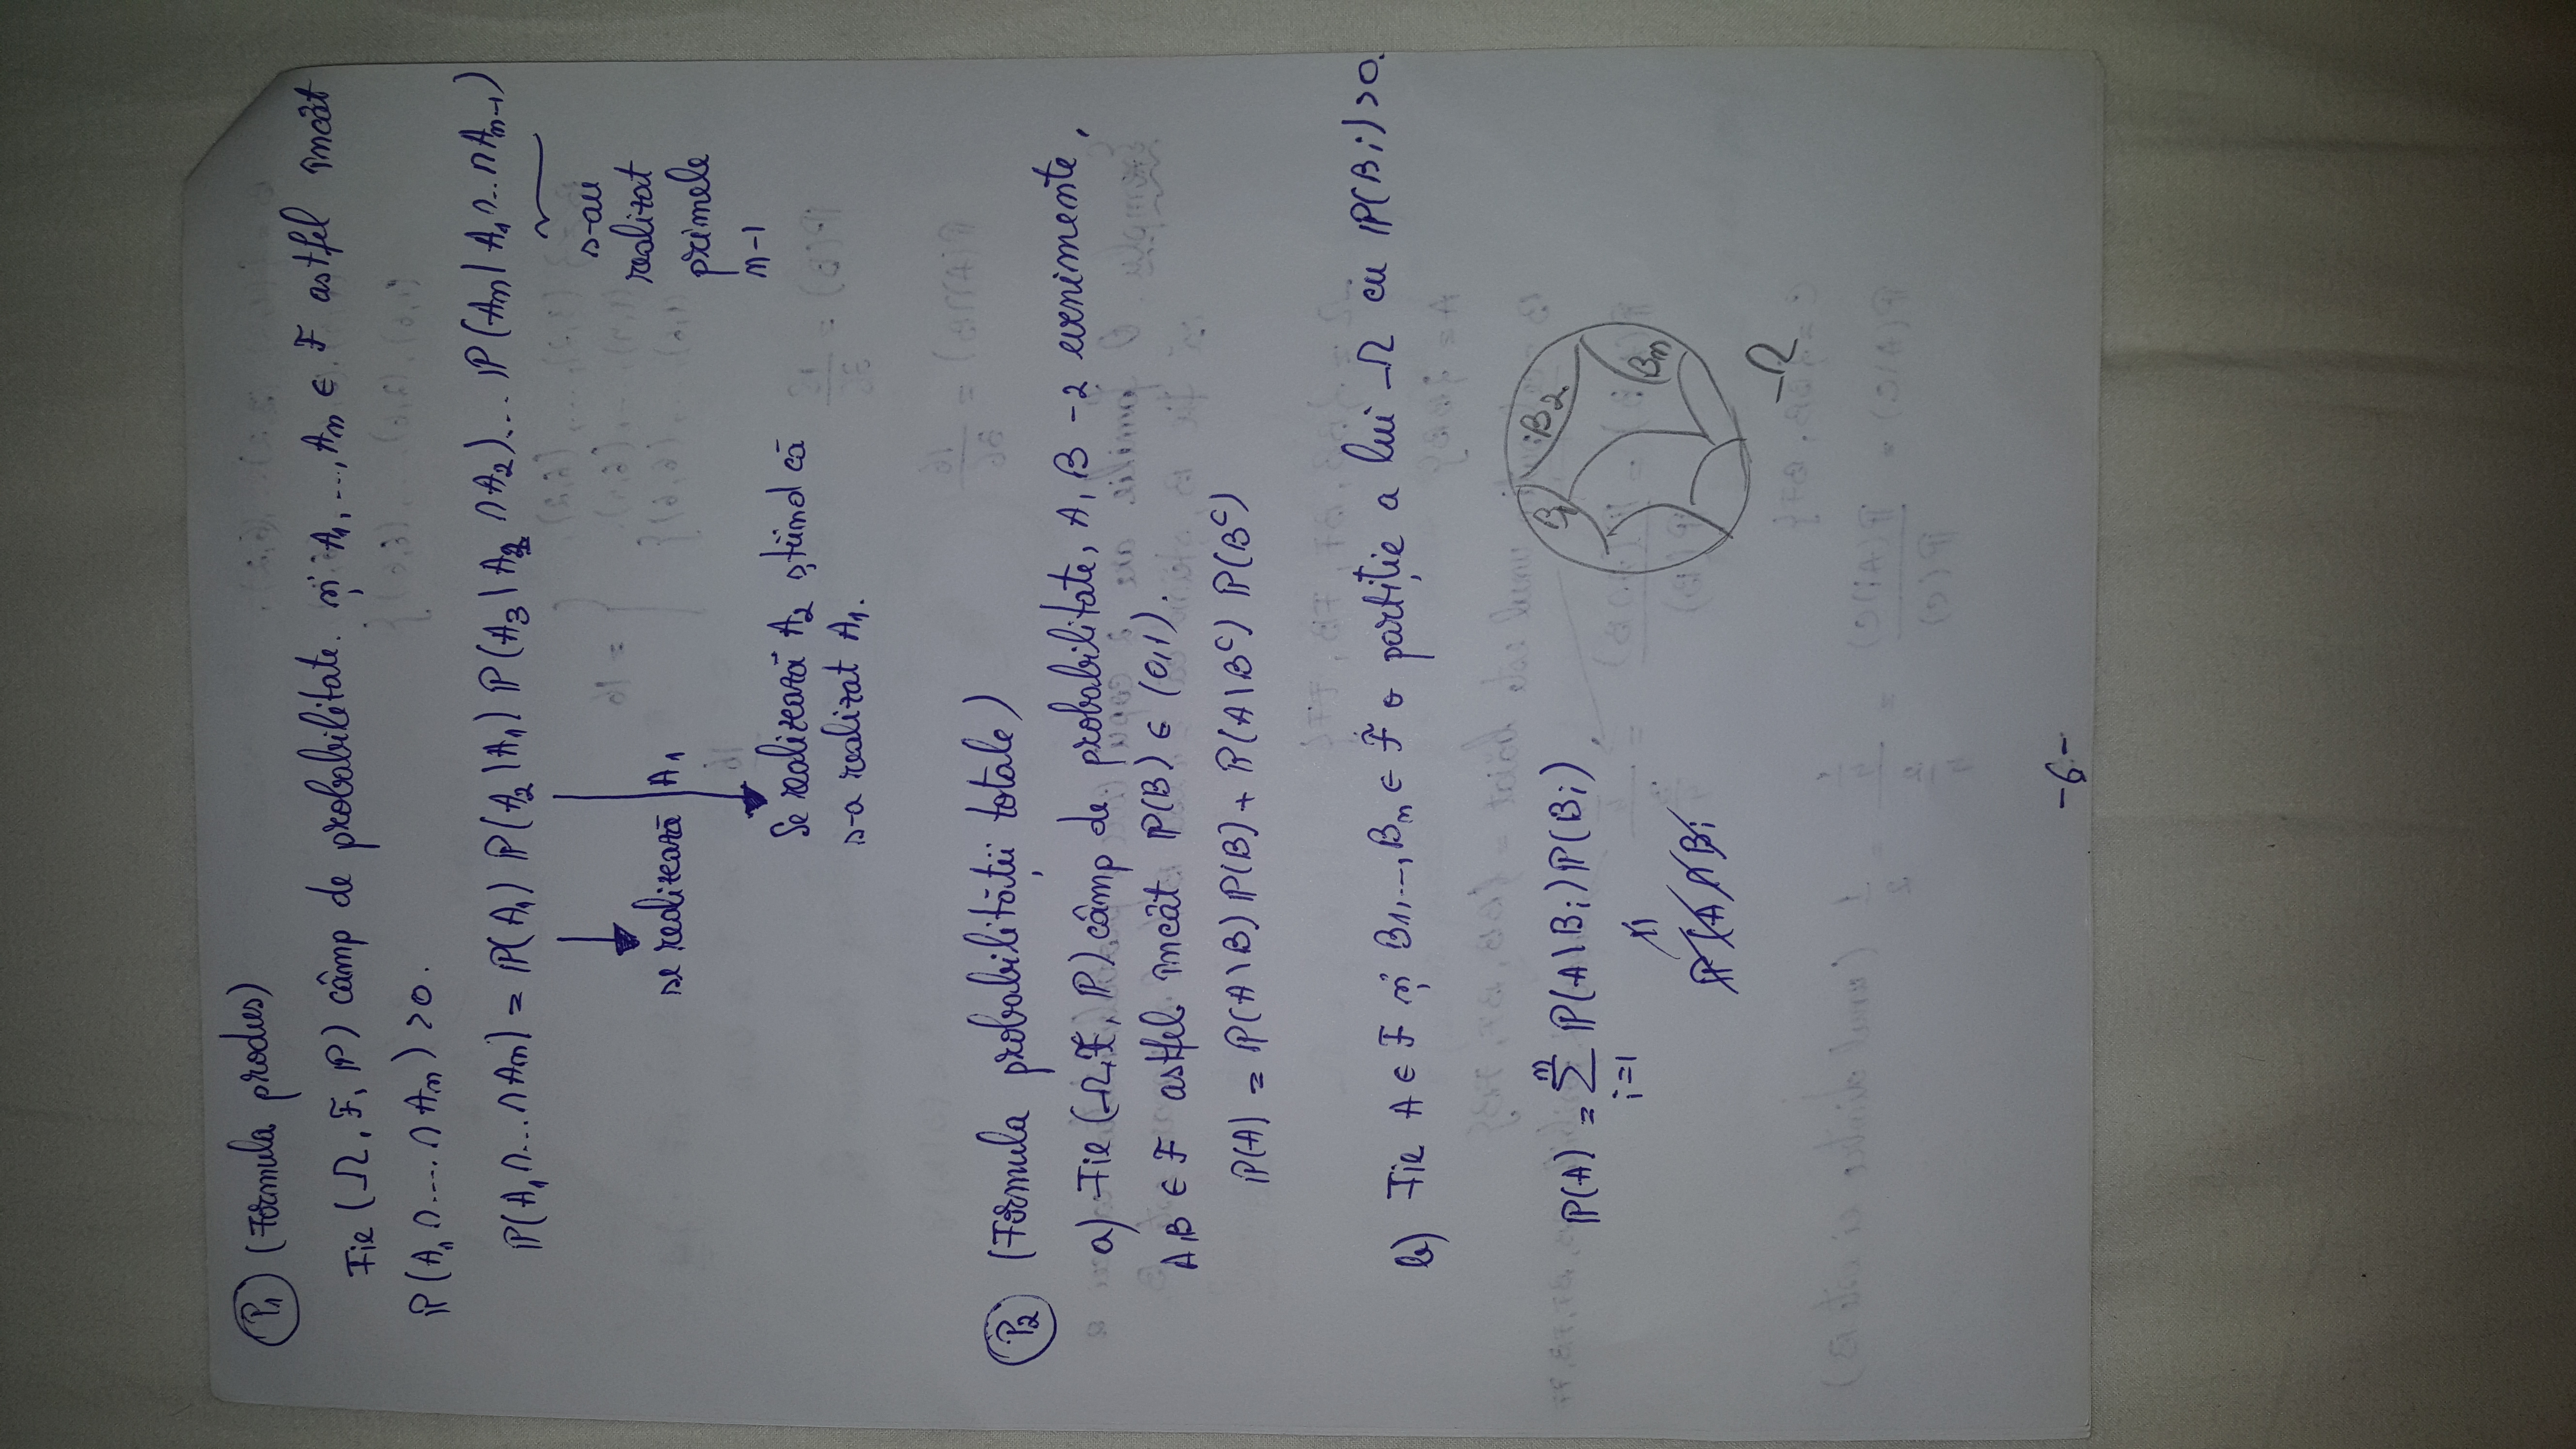 P1 (Formula produs)
Fie (Ω, F, P) câmp de probabilitate. și A1, ..., An ∈ F astfel încât
P(A1 ∩ .... ∩ An) > 0.
P(A1 ∩ ... ∩ An) = P(A1) P(A2 | A1) P(A3 | A2 ∩ A2) ... P(An | A1 ∩ .. ∩ An-1)
s-au
realizat
primele
n-1
se realizează A1
Se realizează A2 știind că
s-a realizat A1.
P2 (Formula probabilității totale)
a) Fie (Ω, F, P) câmp de probabilitate, A, B - 2 evenimente,
A, B ∈ F astfel încât P(B) ∈ (0,1).
P(A) = P(A \ B) P(B) + P(A \ B^c) P(B^c)
b) Fie A ∈ F și B1, ..., Bn ∈ F o partiție a lui Ω cu P(Bi) > 0.
P(A) = Σ_{i=1}^{n} P(A \ Bi) P(Bi)
P(A ∩ Bi
B1 B2
Bn
Ω
-6-